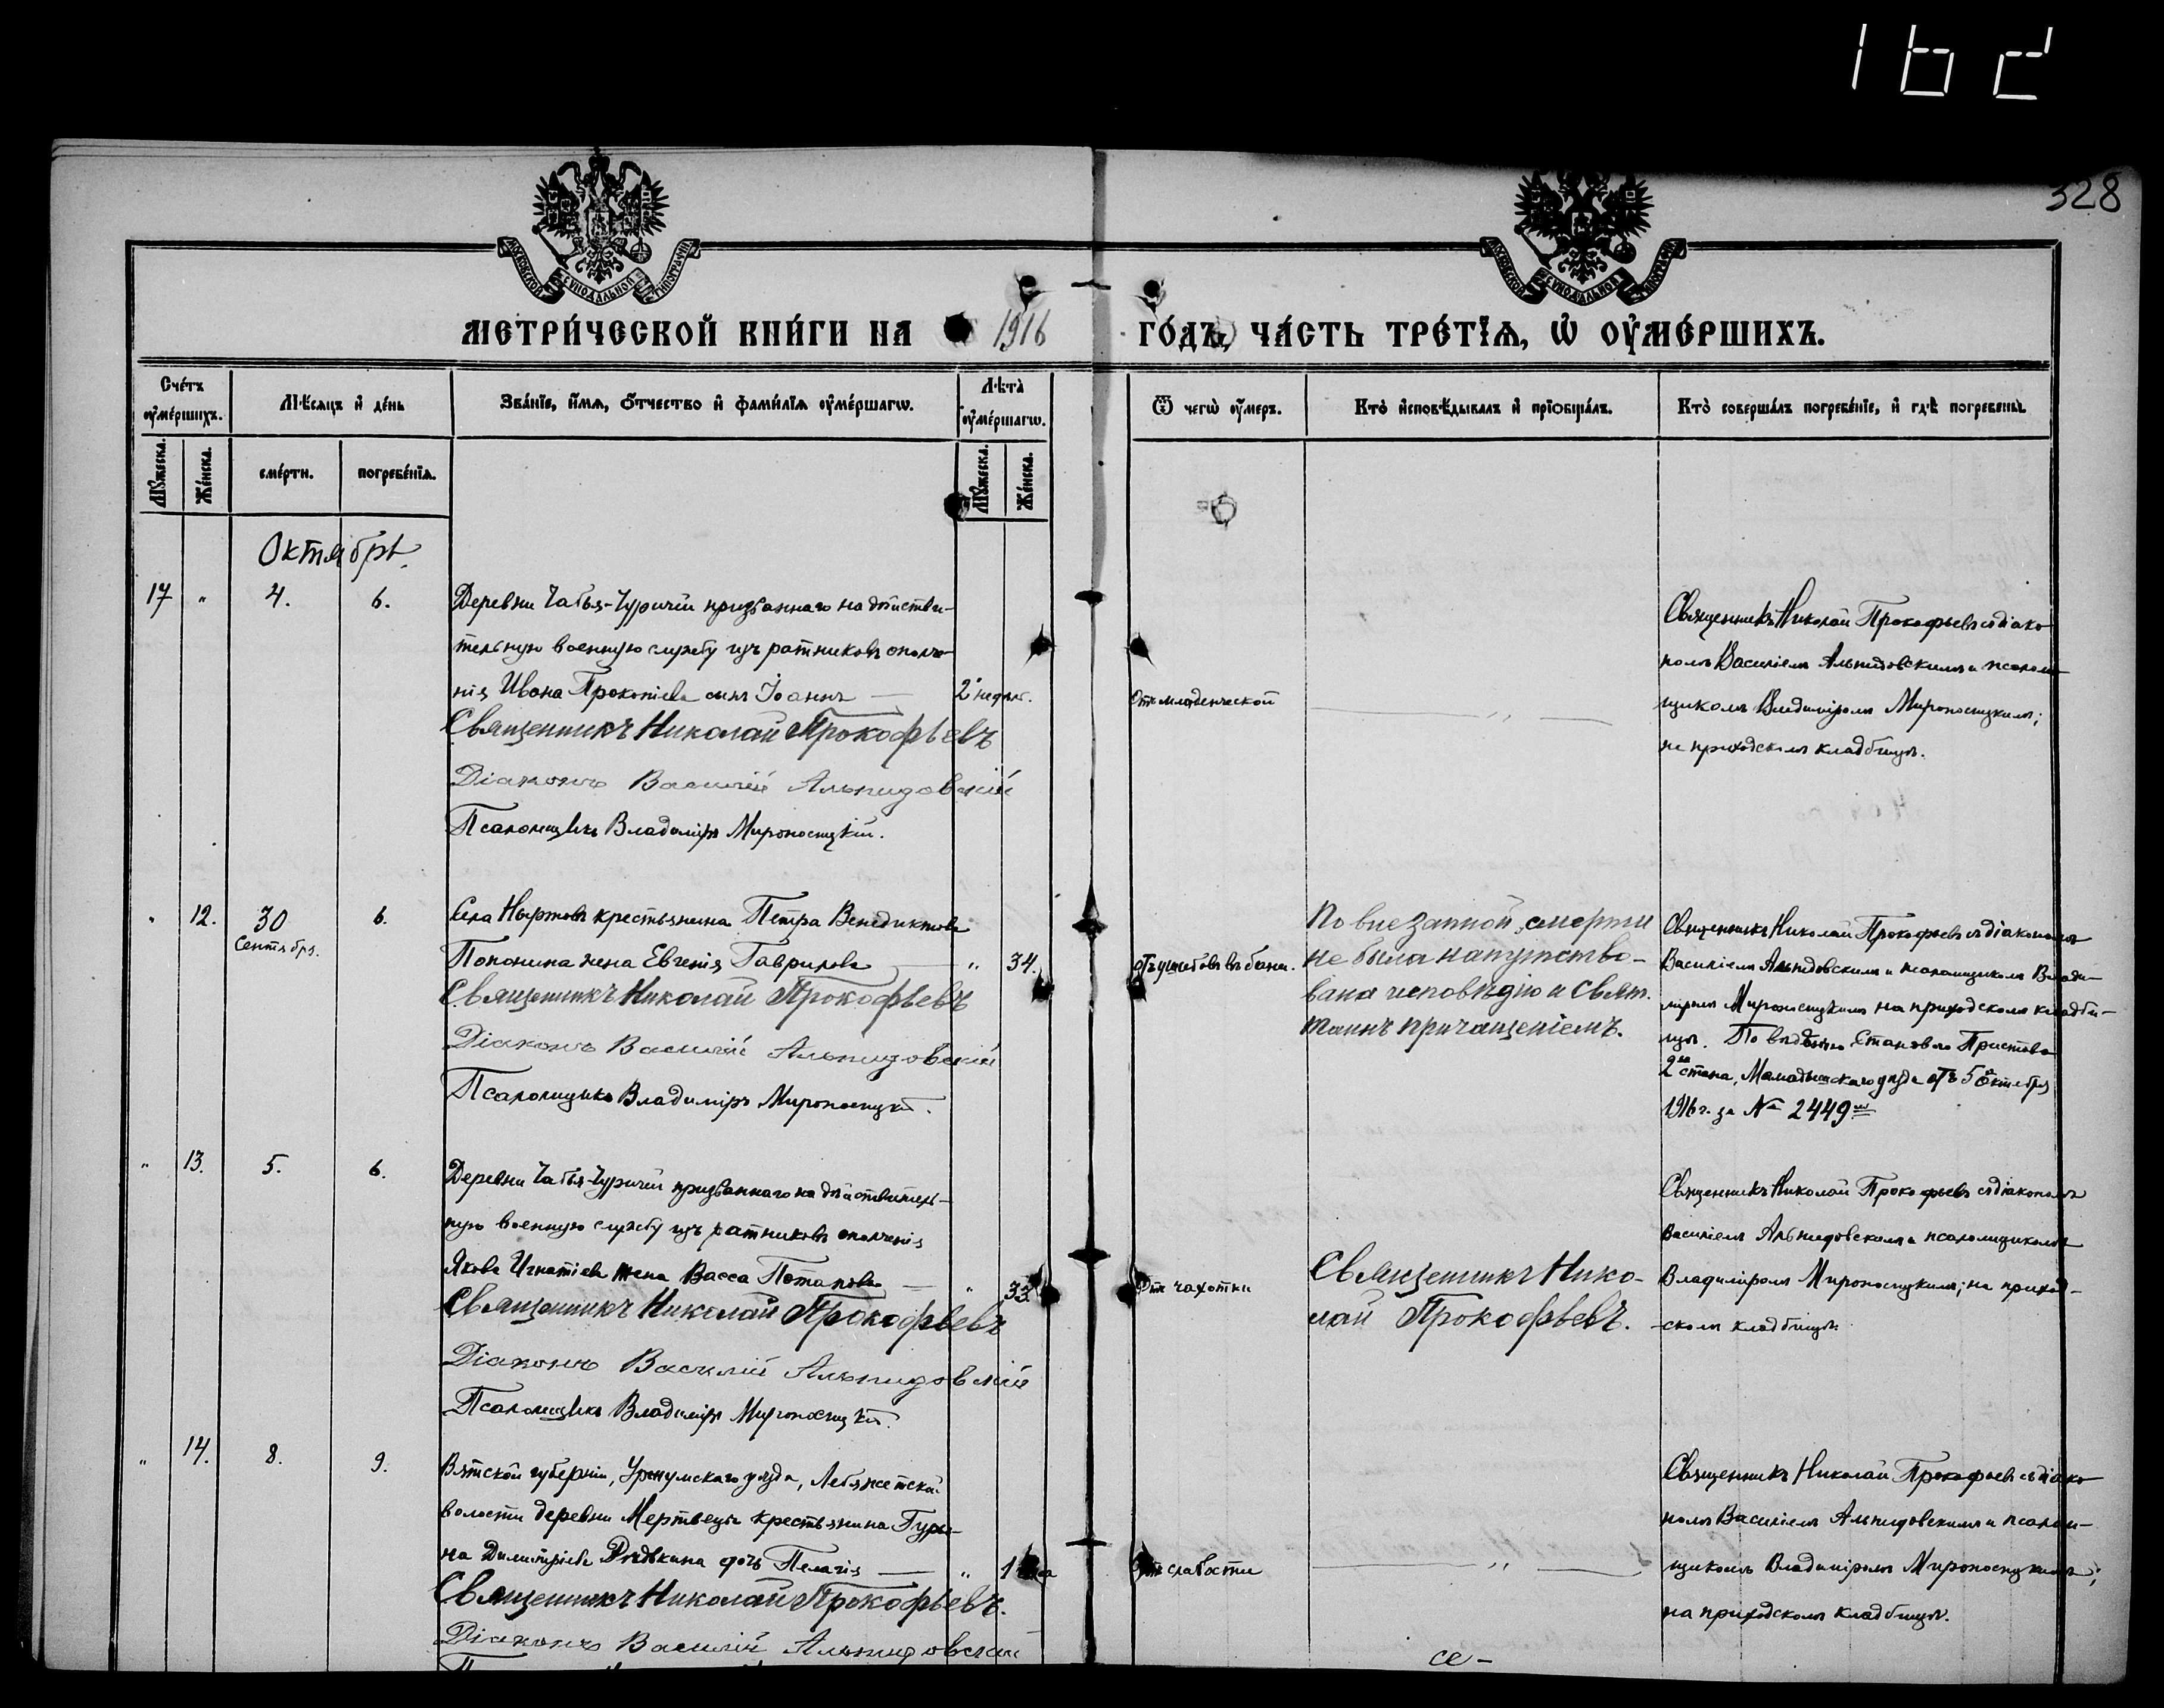 162
328
МОСКОВСКОЙ СУНОДАЛЬНОЙ ТИПОГРАФИИ
МОСКОВСКОЙ СУНОДАЛЬНОЙ ТИПОГРАФИИ
МЕТРИ́ЧЕСКОЙ КНИ́ГИ НА 1916 ГО́ДЪ, ЧА́СТЬ ТРЕ́ТІѦ, Ѡ҆ ОУ҆МЕ́РШИХЪ.
Сче́тъ оу҆ме́ршихъ.
Мѣ́сяцъ и҆ де́нь
Зва́нїе, и҆́мѧ, ѻ҆́тчество и҆ фамі́лїѧ оу҆ме́ршагѡ.
Лѣ́та оу҆ме́ршагѡ.
Ѿ чегѡ̀ оу҆́меръ.
Кто̀ и҆сповѣ́дывалъ и҆ прїѡбща́лъ.
Кто̀ соверша́лъ погребе́нїе, и҆ гдѣ̀ погребены̀.
Мꙋ́жеска. Же́нска.
сме́рти.
погребе́нїѧ.
Мꙋ́жеска. Же́нска.
Октябрь.
17 " 4. 6.
Деревни Чабья-Чурчи призваннаго на действи-
тельную военную службу изъ ратниковъ ополче-
нія Ивана Прокопіева сынъ Іоаннъ — 2 недѣл.
Священникъ Николай Прокофьевъ
Діаконъ Василій Альпидовскій
Псаломщикъ Владиміръ Мироносицкій.
Отъ младенческой
— " —
Священникъ Николай Прокофьевъ съ діако
номъ Василіемъ Альпидовскимъ и псалом
щикомъ Владиміромъ Мироносицкимъ;
на приходскомъ кладбищѣ.
" 12. 30 Сентября. 6.
Села Ныртовъ крестьянина Петра Венедиктова
Попонина жена Евгенія Гаврилова — " 34.
Священникъ Николай Прокофьевъ
Діаконъ Василій Альпидовскій
Псаломщикъ Владиміръ Мироносицкій.
отъ ушибовъ въ бани.
По внезапной смерти
не была напутство-
вана исповѣдію и Свят.
Таинъ причащеніемъ.
Священникъ Николай Прокофьевъ съ діакономъ
Василіемъ Альпидовскимъ и псаломщикомъ Влади-
міромъ Мироносицкимъ на приходскомъ кладби-
щѣ. По Станового Пристава
2го стана, Мамадышскаго уѣзда отъ 5 Октября
1916 г. за № 2449
" 13. 5. 6.
Деревни Чабья-Чурчи призваннаго на дѣйствитель-
ную военную службу изъ ратниковъ ополченія
Якова Игнатіева жена Васса Потапова — " 33
Священникъ Николай Прокофьевъ
Діаконъ Василій Альпидовскій
Псаломщикъ Владиміръ Мироносицкій.
Отъ чахотки
Священникъ Нико-
лай Прокофьевъ.
Священникъ Николай Прокофьевъ съ діакономъ
Василіемъ Альпидовскимъ и псаломщикомъ
Владиміромъ Мироносицкимъ; на приход-
скомъ кладбищѣ
" 14. 8. 9.
Вятской губерніи, Уржумскаго уѣзда, Лебяжетской
волости деревни Мертвецы крестьянина Гурья-
на Димитріева дочь Пелагія — " 1
Священникъ Николай Прокофьевъ.
Діаконъ Василій Альпидовскій
Отъ слабости
— " —
Священникъ Николай Прокофьевъ съ діако
номъ Василіемъ Альпидовскимъ и псалом-
щикомъ Владиміромъ Мироносицкимъ;
на приходскомъ кладбищѣ.
се-